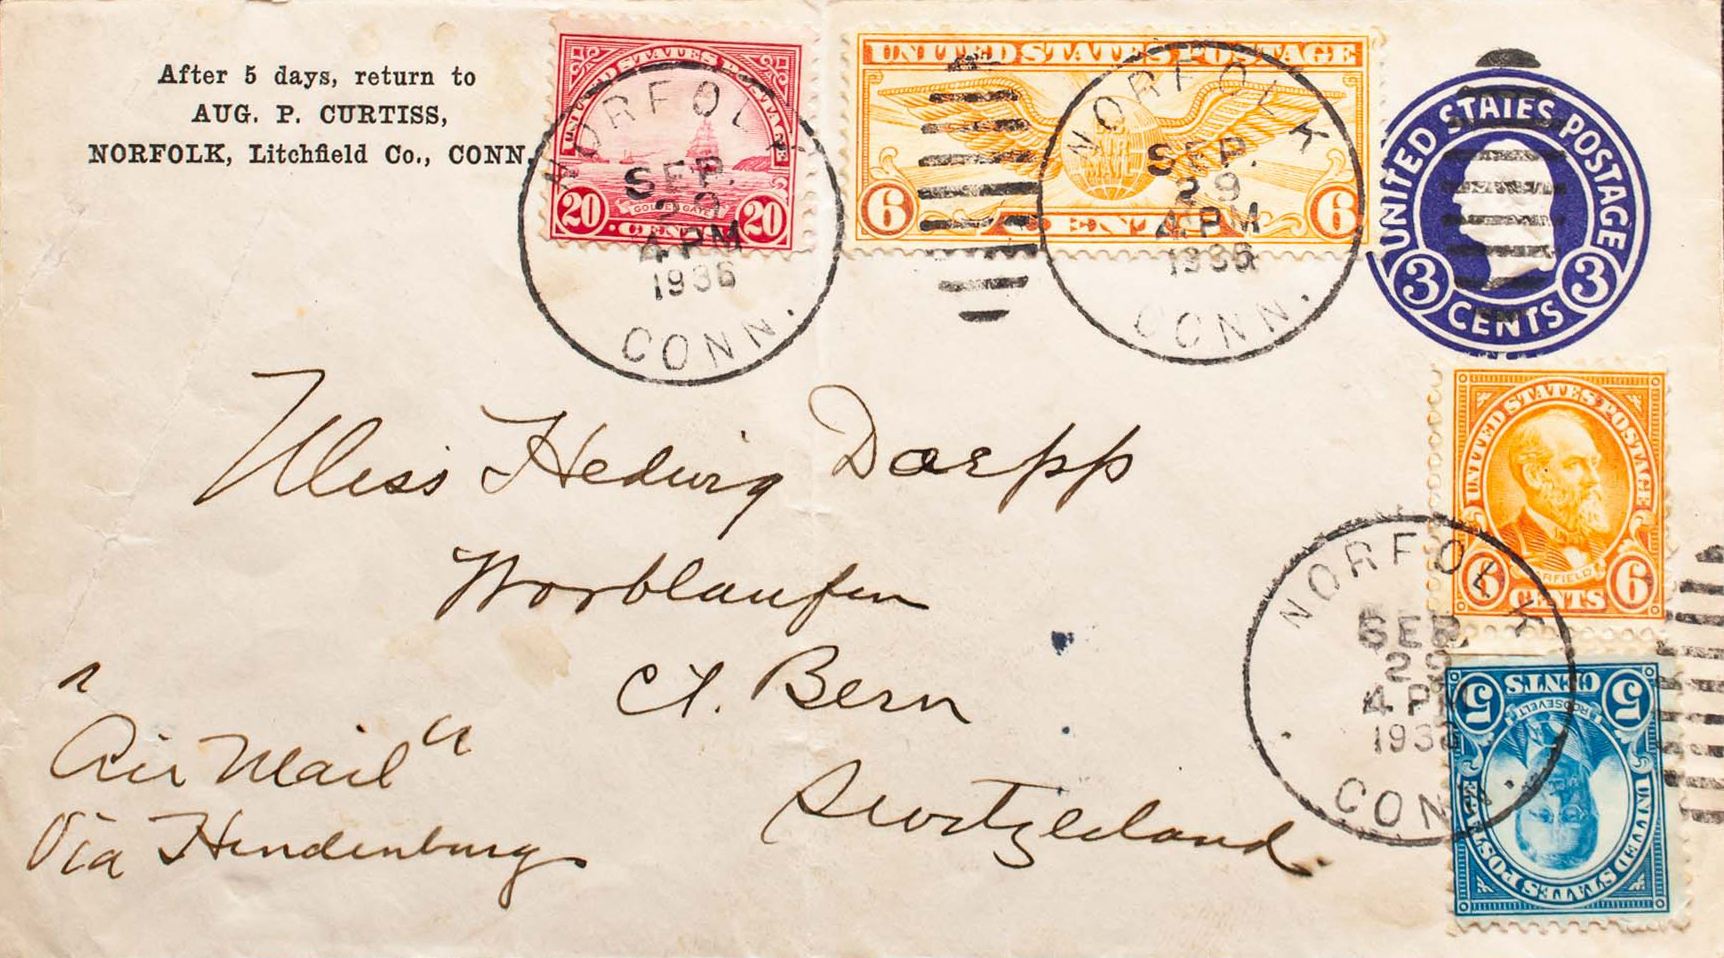 After 5 days, return to
AUG. P. CURTISS,
NORFOLK, Litchfield Co., CONN.
UNITED STATES POSTAGE
20 GOLDEN GATE 20
CENTS
NORFOLK
SEP.
29
4 PM
1936
CONN.
UNITED STATES POSTAGE
AIR
MAIL
6 CENTS 6
NORFOLK
SEP.
29
4 PM
1936
CONN.
UNITED STATES POSTAGE
3 3
CENTS
UNITED STATES POSTAGE
GARFIELD
6 CENTS 6
NORFOLK
SEP.
29
4 PM
1936
CONN.
UNITED STATES POSTAGE
ROOSEVELT
5 CENTS 5
Miss Hedwig Daepp
Worblaufen
Ct. Bern
Switzerland.
"Air Mail"
Via Hindenburg